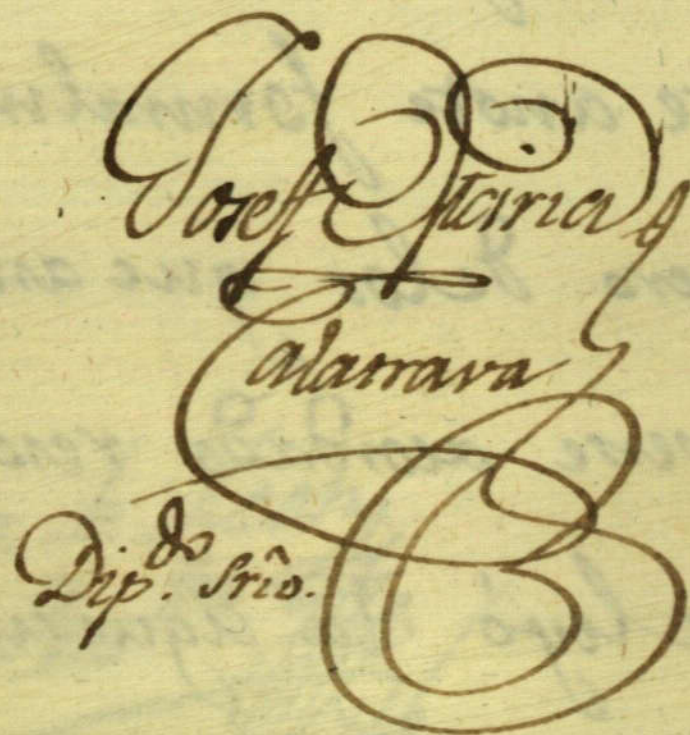 Josef Maria
Calatrava
Dip.do Srîo.